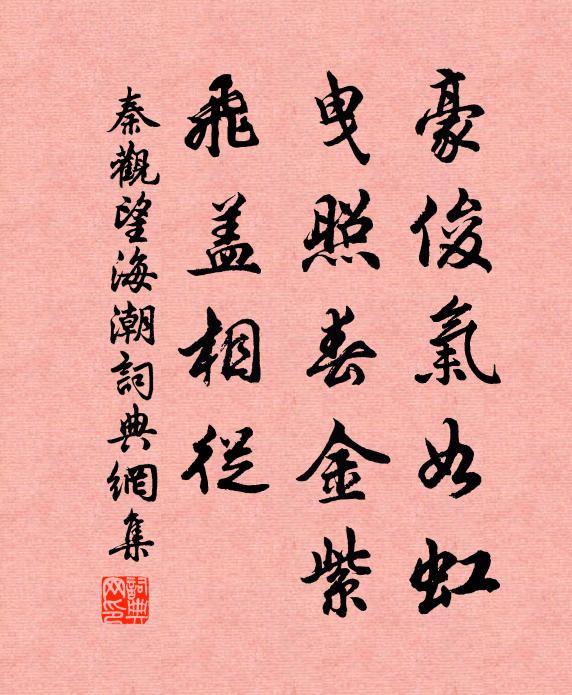 豪俊氣如虹
曳照春金紫
飛盖相從
秦觀望海潮詞典網集
詞典網印